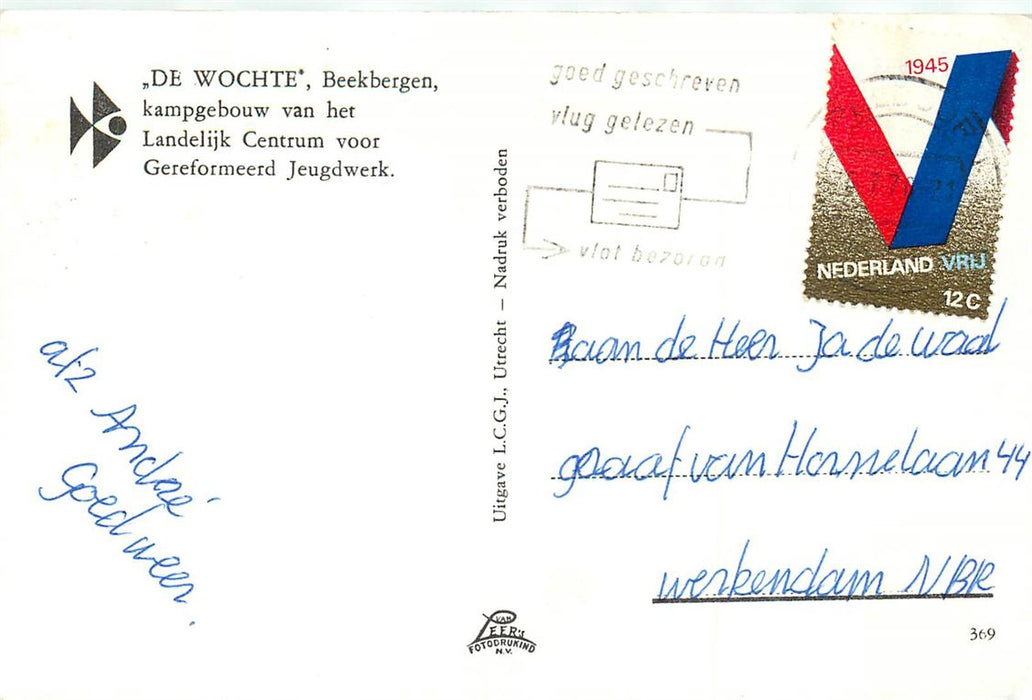 „DE WOCHTE", Beekbergen,
kampgebouw van het
Landelijk Centrum voor
Gereformeerd Jeugdwerk.
afz André
Goed weer.
Uitgave L.C.G.J., Utrecht – Nadruk verboden
VAN
LEER's
FOTODRUKIND
N.V.
goed geschreven
vlug gelezen
vlot bezorgd
1945
NEDERLAND VRIJ
12C
aan de Heer Ja de waal
graaf van Hornelaan 44
werkendam NBR
369